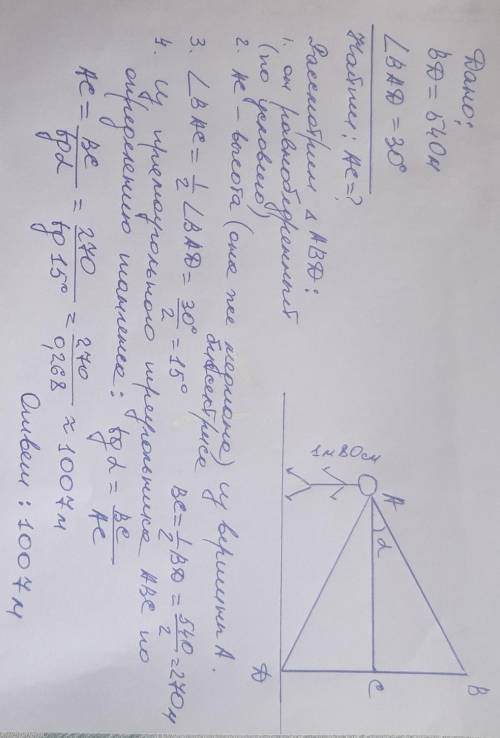 Дано:
BD = 540м
∠BAD = 30°
Найти: AC = ?
Рассмотрим △ABD:
1. он равнобедренный
(по условию)
2. AC – высота (она же медиана) из вершины A.
биссектриса
3. ∠BAC = 1/2 ∠BAD = 30°/2 = 15° BC = 1/2 BD = 540/2 = 270м
4. Из прямоугольного треугольника ABC по
определению тангенса: tg α = BC/AC
AC = BC/tg α = 270/tg 15° = 270/0,268 ≈ 1007м
Ответ: 1007м
1м80см
A
α
B
C
D